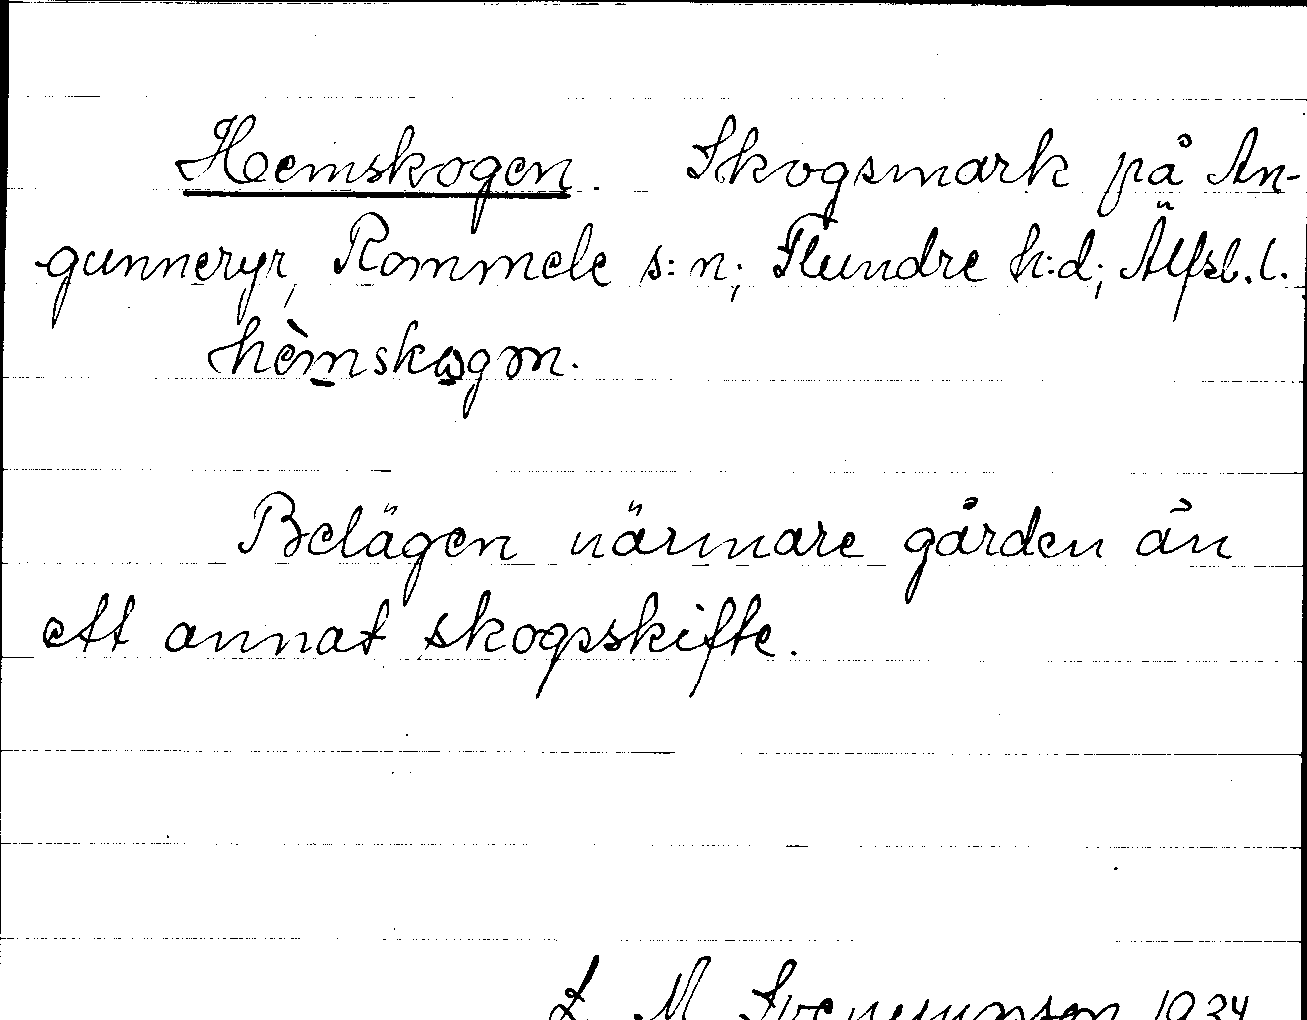 Hemskogen. Skogsmark på An-
gunneryr, Rommele s:n; Flundre h:d; Älfsb. l.
hèmskωgm.
Belägen närmare gården än
ett annat skogsskifte.
L M 1934